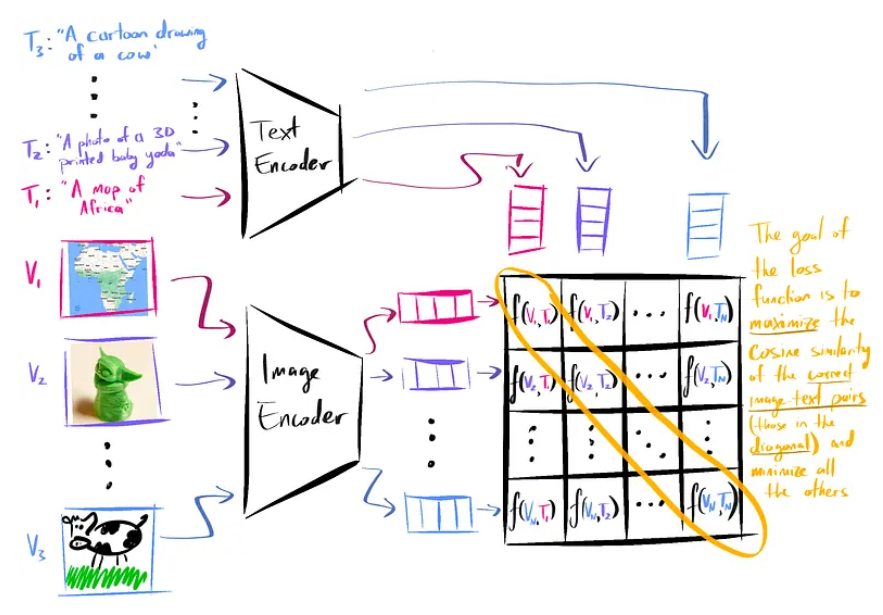 T3: "A cartoon drawing
of a cow'
T2: "A photo of a 3D
printed baby yoda"
T1: "A map of
Africa"
Text
Encoder
V1
V2
V3
Image
Encoder
f(V1,T1) f(V1,T2) ... f(V1,TN)
f(V2,T1) f(V2,T2) ... f(V2,TN)
f(VN,T1) f(VN,T2) ... f(VN,TN)
The goal of
the loss
function is to
maximize the
cosine similarity
of the correct
image-text pairs
(those in the
diagonal) and
minimize all
the others